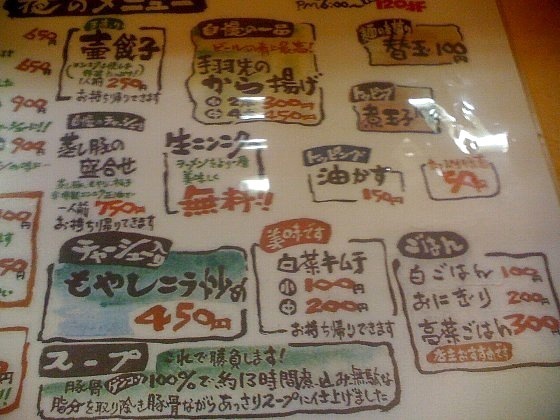 夜のメニュー
PM6:00
650円
650円
900円
900円
壺餃子
1人前 290円
お持ち帰りできます
自慢の一品
手羽先の
から揚げ
2コ 300円
4コ 450円
替玉 100円
トッピング
煮玉子
蒸し豚の
盛合せ
一人前 750円
お持ち帰りできます
生ニンニク
美味しく
無料!!
トッピング
油かす
150円
50円
チャーシュー入り
もやしニラ炒め
450円
美味です
白菜キムチ
小 100円
大 200円
お持ち帰りできます
ごはん
白ごはん 100円
おにぎり 200円
高菜ごはん 300円
店主おすすめです
スープ これで勝負します!
豚骨100%で約13時間煮込み無駄な
脂分を取り除き豚骨ながらあっさりスープに仕上げました